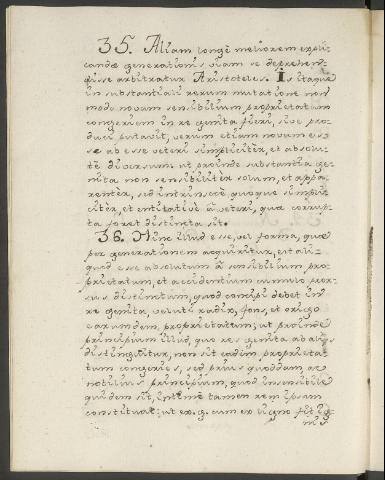 35. Aliam longè meliorem expli-
candæ generationis viam se deprehen-
disse arbitratur Aristoteles. Is itaque
in substantiali rerum mutatione non
modo novam sensibilium proprietatum
congeriem in re genita fieri, sive pro-
duci putavit, verum etiam novum es-
se ab esse veteri simpliciter, et absolu-
tè diversum: ut proinde substantia ge-
nita non sensibiliter solum, et appa-
renter, sed intrinsecè quoque simpli-
citer, et entitativè à veteri, quæ corrup-
ta foret distincta sit.
36. Hinc illud esse, vel forma, quæ
per generationem acquiritur, est ali-
quid esse absolutum à sensibilium pro-
prietatum, et accidentium cumulo pror-
sus distinctum, quod concipi debet in
re genita, veluti radix, fons, et origo
earumdem proprietatum; ut proinde
principium illud, quo res genita ab aliis
distinguitur, non sit eadem proprieta-
tum congeries, sed prius quoddam, ac
nobilius principium, quod insensibile
quidem sit, intimè tamen rem ipsam
constituat: ut ex. g. cum ex ligno fit ig-
nis